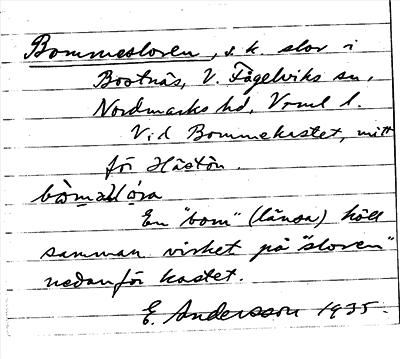 Bommesloren, s.k. slor i
Bootnäs, V. Fågelviks sn,
Nordmarks hd, Vrml l.
Vid Bommekastet, mitt
för Hästön.
En "bom" (länsa) höll
samman virket på "sloren"
nedanför kastet.
E. Andersson 1935.